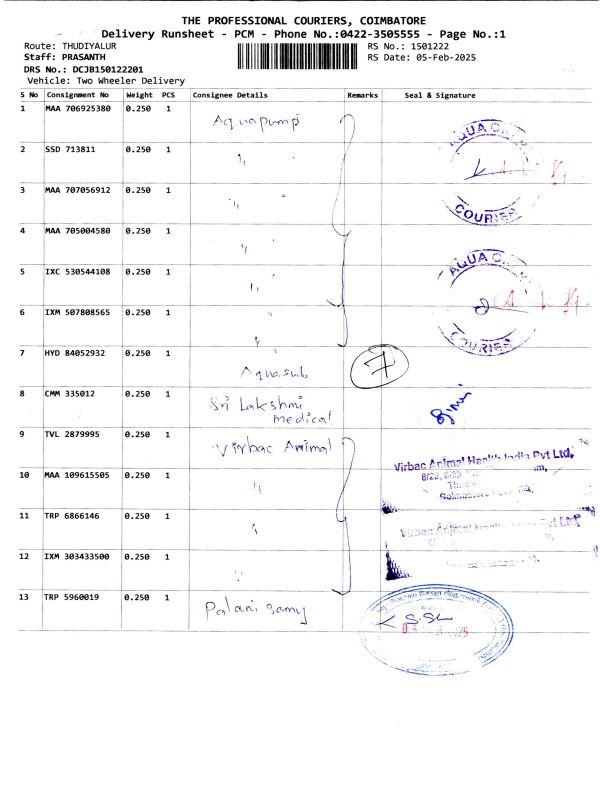 THE PROFESSIONAL COURIERS, COIMBATORE
Delivery Runsheet - PCM - Phone No.:0422-3505555 - Page No.:1
Route: THUDIYALUR
RS No.: 1501222
Staff: PRASANTH
RS Date: 05-Feb-2025
DRS No.: DCJB150122201
Vehicle: Two Wheeler Delivery
S No Consignment No Weight PCS Consignee Details Remarks Seal & Signature
1 MAA 706925380 0.250 1 Aquapump
2 SSD 713811 0.250 1 "
3 MAA 707056912 0.250 1 "
4 MAA 705004580 0.250 1 "
5 IXC 530544108 0.250 1 "
6 IXM 507808565 0.250 1 "
7 HYD 84052932 0.250 1 Aquasub 7
8 CMM 335012 0.250 1 Sri Lakshmi medical
9 TVL 2879995 0.250 1 Virbac Animal
10 MAA 109615505 0.250 1 "
11 TRP 6866146 0.250 1 "
12 IXM 303433500 0.250 1 "
13 TRP 5960019 0.250 1 Palani samy
AQUA
COURIER
AQUA
COURIER
Virbac Animal Health India Pvt Ltd.
Virbac Animal Health India Pvt Ltd